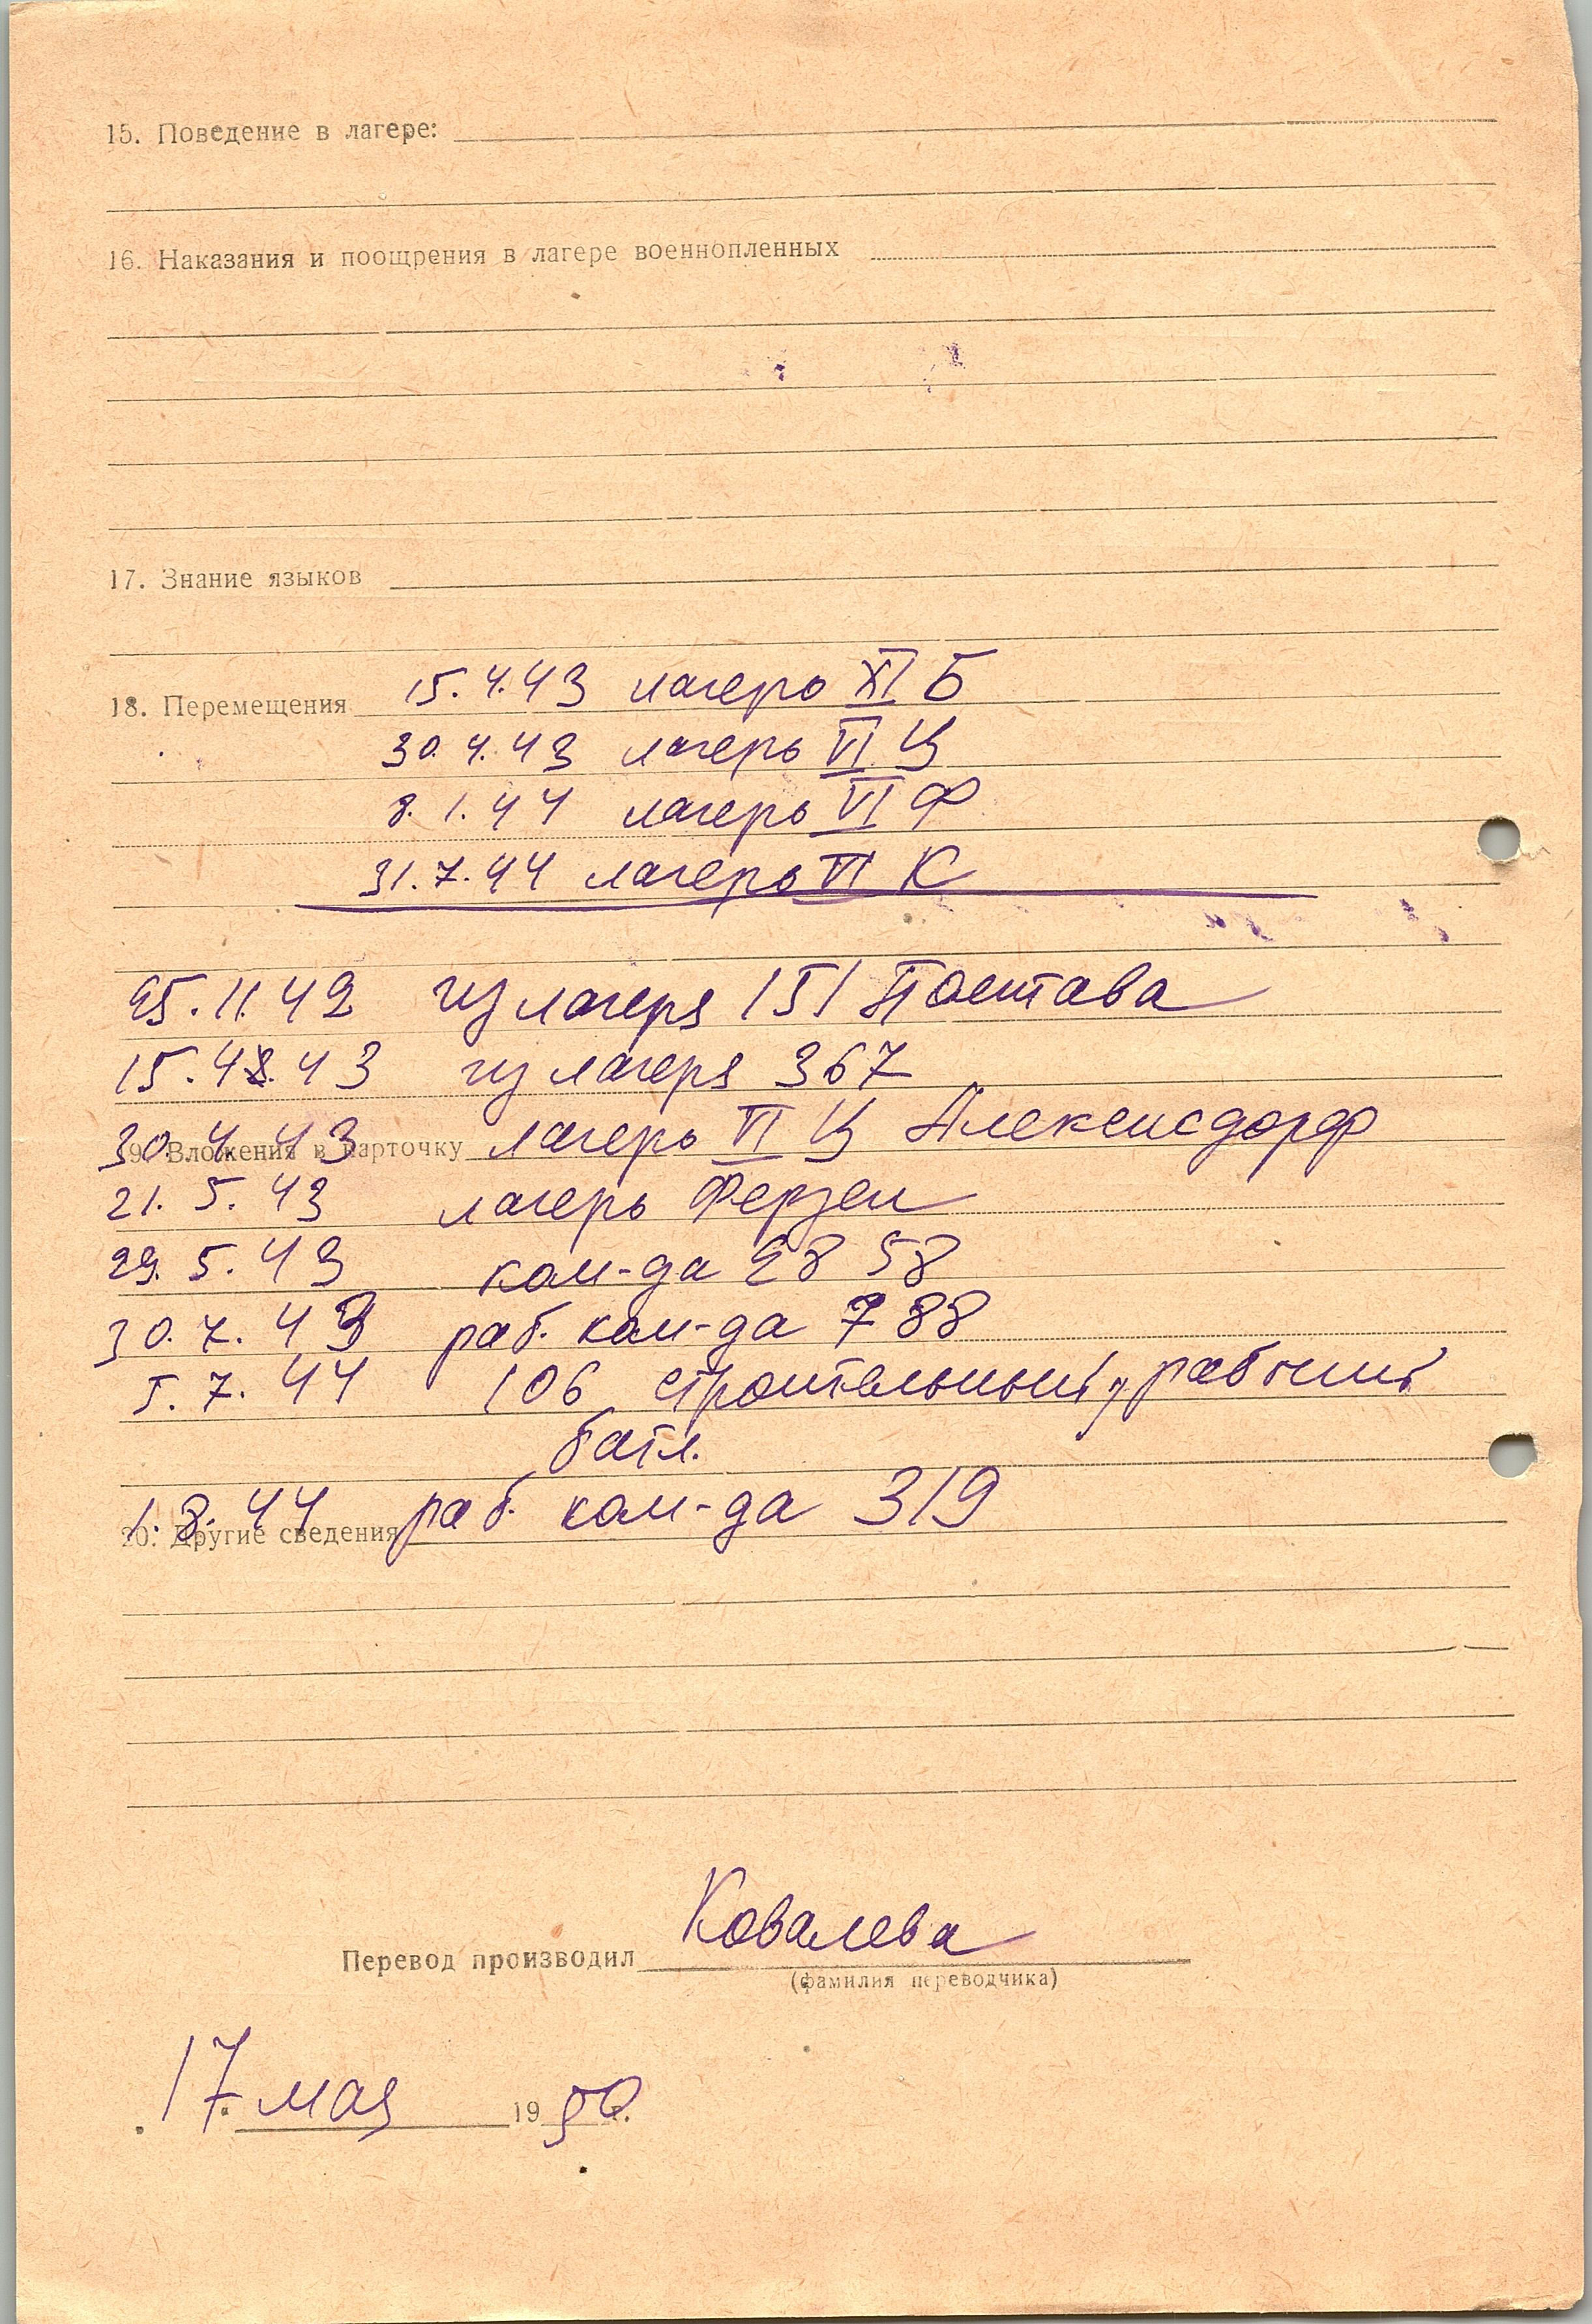 15. Поведение в лагере:
16. Наказания и поощрения в лагере военнопленных
17. Знание языков
18. Перемещения 15.4.43 лагерь XI Б
30.4.43 лагерь VI Ц
8.1.44 лагерь VI Ф
31.7.44 лагерь VI К
25.11.42 из лагеря 151 Постава
15.4.43 из лагеря 367
30.4.43 лагерь VI Ц Алексисдорф
19. Вложения в карточку
21.5.43 лагерь Ферзен
29.5.43 ком-да 28 58
30.7.43 раб. ком-да 788
5.7.44 106 строительный, рабочий
батл.
1.8.44 раб. ком-да 319
20. Другие сведения
Перевод производил Ковалева
(фамилия переводчика)
17 мая 1950.